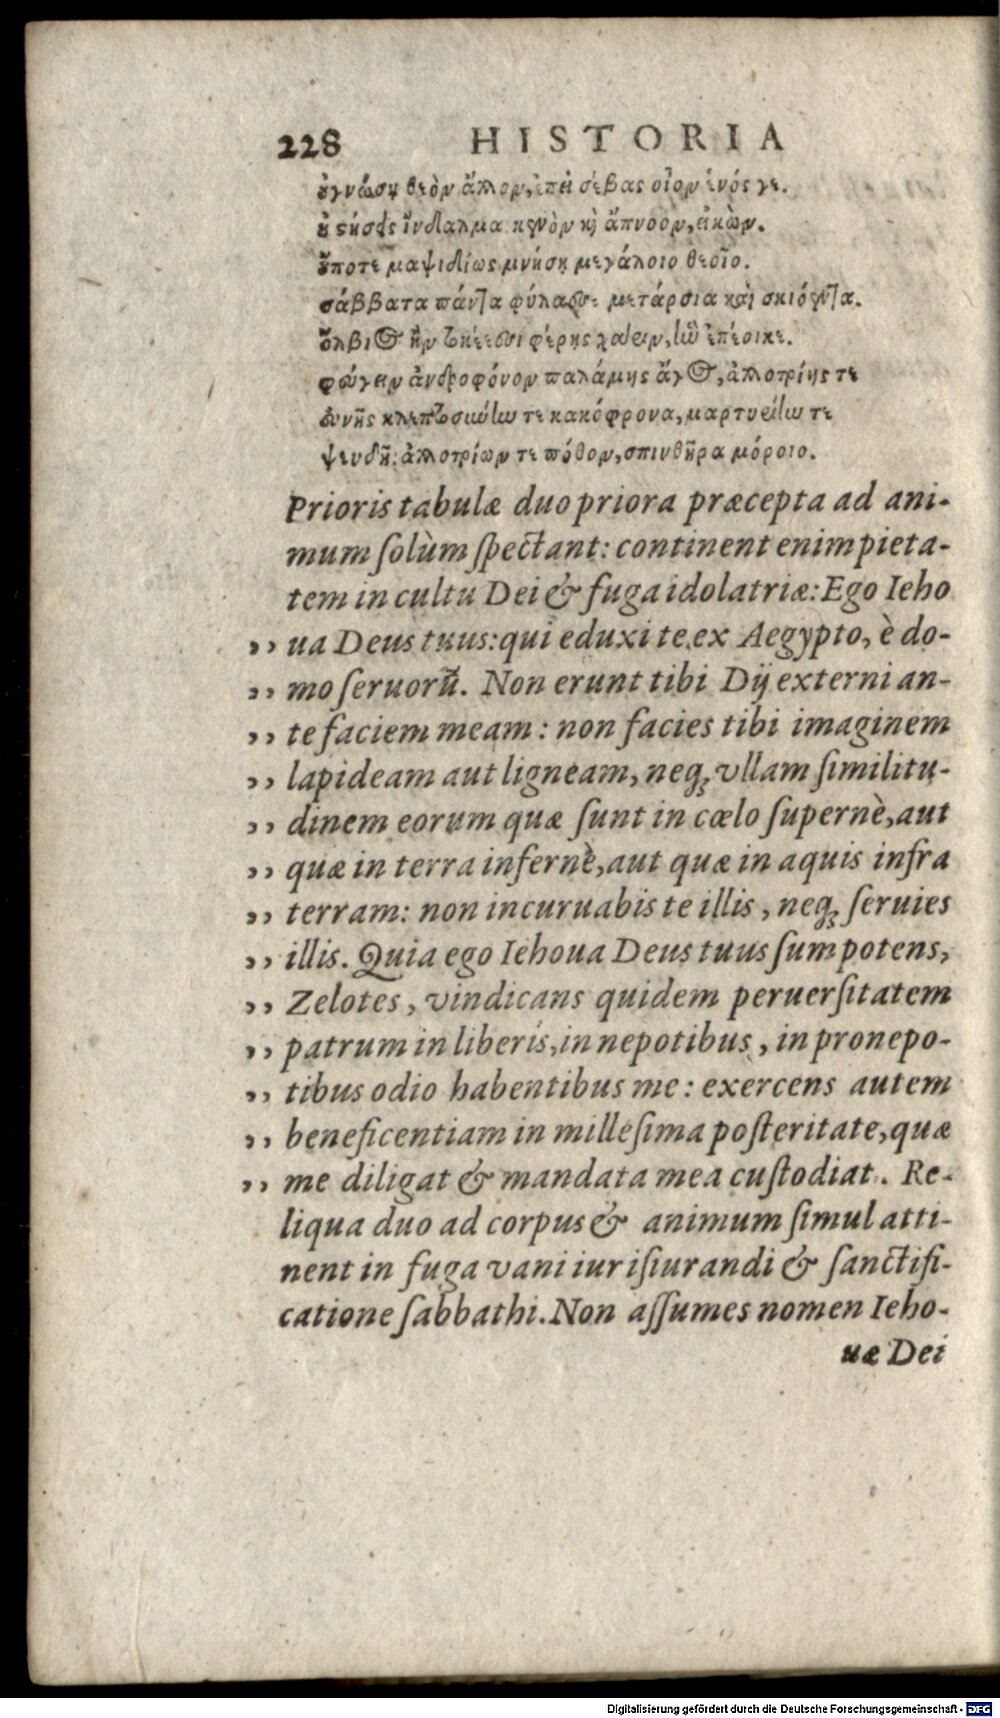 228 HISTORIA
οὐ γνώσῃ θεὸν ἄλλον, ἐπεὶ σέβας οἶον ἑνός γε.
οὐ στήσεις ἴνδαλμα κενὸν καὶ ἄπνοον, εἰκὼν.
οὔποτε μαψιδίως μνήσῃ μεγάλοιο θεοῖο.
σάββατα πάντα φύλασσε μετάρσια καὶ σκιόεντα.
ὄλβιος ἢν τοκέεσσι φέρῃς χάριν, ἣν ἐπέοικε.
φεύγειν ἀνδροφόνον παλάμης ἄγος, ἀλλοτρίης τε
εὐνῆς κλεπτοσύνην τε κακόφρονα, μαρτυρίην τε
ψευδῆ: ἀλλοτρίων τε πόθον, σπινθῆρα μόροιο.
Prioris tabulæ duo priora præcepta ad ani-
mum ſolùm ſpectant: continent enim pieta-
tem in cultu Dei & fuga idolatriæ: Ego Ieho
,, ua Deus tuus: qui eduxi te ex Aegypto, è do-
,, mo ſeruorũ. Non erunt tibi Dij externi an-
,, te faciem meam: non facies tibi imaginem
,, lapideam aut ligneam, neq; vllam ſimilitu-
,, dinem eorum quæ ſunt in cœlo ſupernè, aut
,, quæ in terra infernè, aut quæ in aquis infra
,, terram: non incuruabis te illis, neq; ſeruies
,, illis. Quia ego Iehoua Deus tuus ſum potens,
,, Zelotes, vindicans quidem peruerſitatem
,, patrum in liberis, in nepotibus, in pronepo-
,, tibus odio habentibus me: exercens autem
,, beneficentiam in milleſima poſteritate, quæ
,, me diligat & mandata mea cuſtodiat. Re-
liqua duo ad corpus & animum ſimul atti-
nent in fuga vani iurisiurandi & ſanctifi-
catione ſabbathi. Non aſſumes nomen Ieho-
uæ Dei
Digitalisierung gefördert durch die Deutsche Forschungsgemeinschaft - DFG